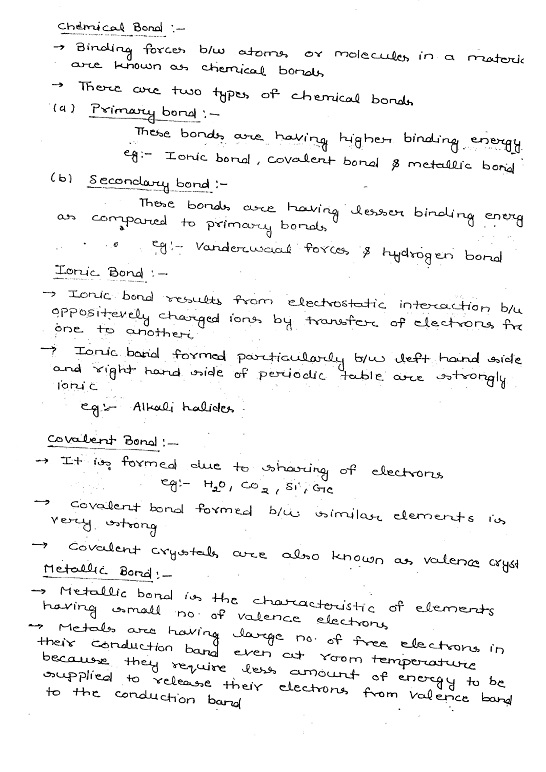 Chemical Bond :-
→ Binding forces b/w atoms or molecules in a materic
are known as chemical bonds
→ There are two types of chemical bonds
(a) Primary bond :-
These bonds are having higher binding energy
eg:- Ionic bond, covalent bond & metallic bond
(b) Secondary bond :-
These bonds are having lesser binding energ
as compared to primary bonds
eg:- Vanderwaal forces & hydrogen bond
Ionic Bond :-
→ Ionic bond results from electrostatic interaction b/w
oppositevely charged ions by transfer of electrons fro
one to another.
→ Ionic bond formed particularly b/w left hand side
and right hand side of periodic table are strongly
ionic
eg:- Alkali halides
Covalent Bond :-
→ It is formed due to sharing of electrons
eg:- H₂O, CO₂, Si, Ge
→ Covalent bond formed b/w similar elements is
very strong
→ Covalent crystals are also known as valence cryst
Metallic Bond :-
→ Metallic bond is the characteristic of elements
having small no. of valence electrons
→ Metals are having large no. of free electrons in
their conduction band even at room temperature
because they require less amount of energy to be
supplied to release their electrons from valence band
to the conduction band